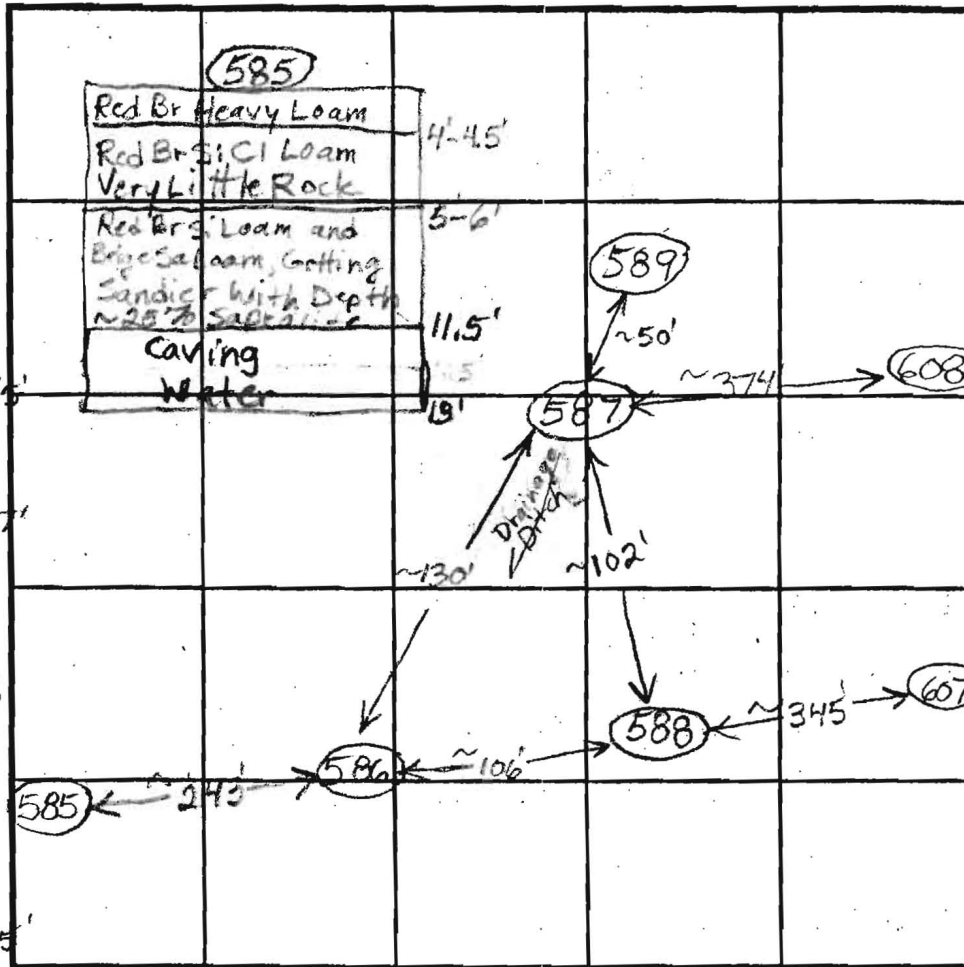 585
Red Br Heavy Loam
4'-4.5'
Red Br Si Cl Loam
Very Little Rock
5-6'
Red Br Si Loam and
Beige Sa Loam, Getting
Sandier With Depth
~25%
11.5'
Caving
Water
19'
589
~50'
608
~374
587
Drainage
Ditch
~130'
~102'
607
~345'
588
~106'
586
~243'
585